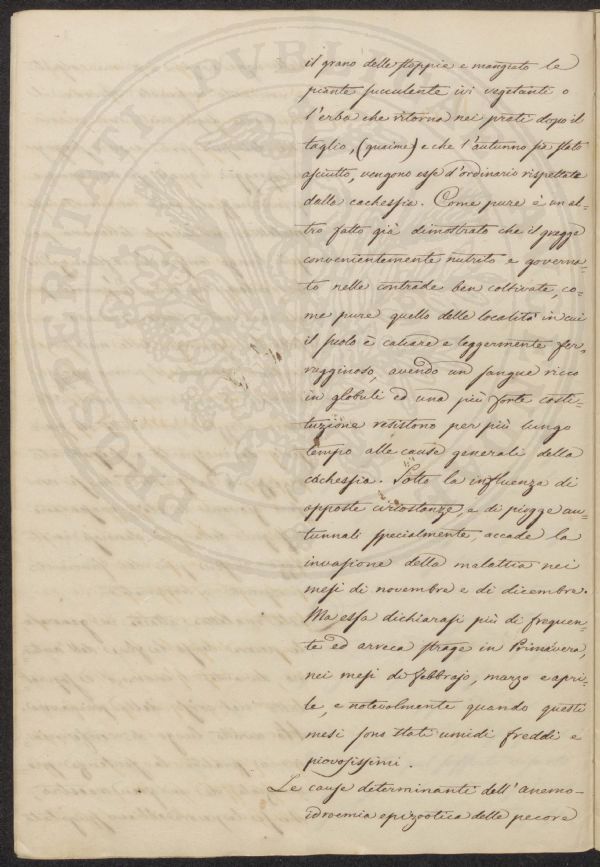 il grano delle stoppie e mangiato le
piante succulente ivi vegetanti o
l'erba che ritorna nei prati dopo il
taglio, (guaime) e che l'autunno sia stato
asciutto, vengono esse d'ordinario rispettate
dalla cachessia. Come pure è un al-
tro fatto già dimostrato che il gregge
convenientemente nutrito e governa-
to nelle contrade ben coltivate, co-
me pure quello delle località in cui
il suolo è calcare e leggermente fer-
rugginoso, avendo un sangue ricco
in globuli ed una più forte costi-
tuzione resistono per più lungo
tempo alle cause generali della
cachessia. Sotto la influenza di
opposte circostanze, e di piogge au-
tunnali specialmente, accade la
invasione della malattia nei
mesi di novembre e di dicembre.
Ma essa dichiarasi più di frequen-
te ed arreca strage in Primavera,
nei mesi di febbrajo, marzo e apri-
le, e notevolmente quando questi
mesi sono stati umidi freddi e
piovosissimi.
Le cause determinanti dell'anemo-
idroemia epizootica delle pecore
PROSPERITATI PVBLICAE